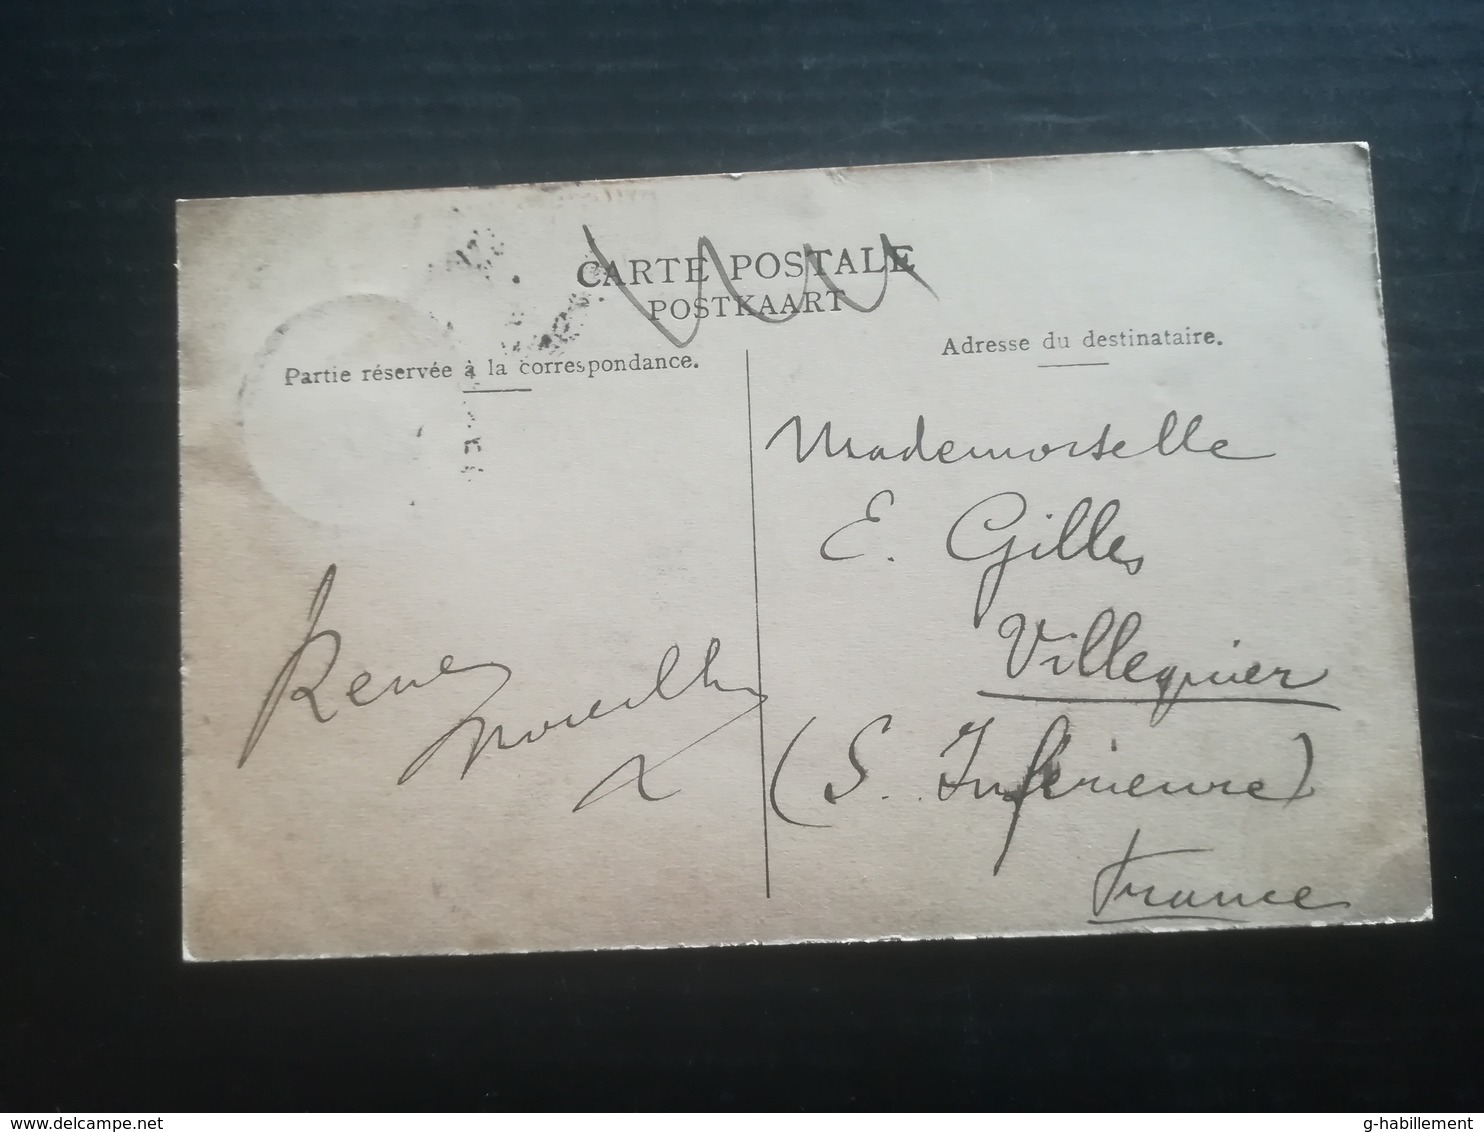 CARTE POSTALE
POSTKAART
Partie réservée à la correspondance.
Adresse du destinataire.
Mademoiselle
E. Gilles
Villequier
(S. Inférieure)
France
René
www.delcampe.net
g-habillement